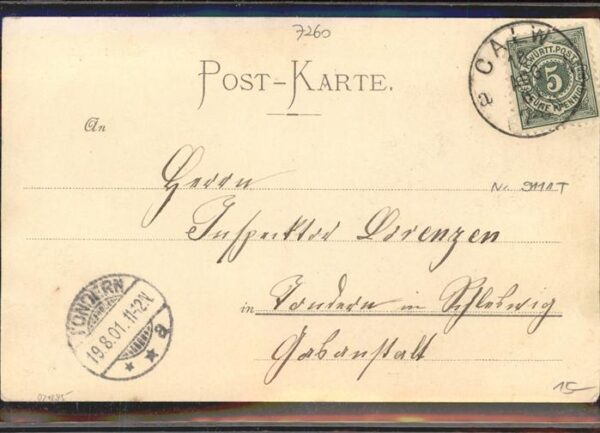 7260
POST-KARTE.
CALW
a
K. WÜRTT. POST
5
5
FÜNF PFENNIG
An
Herrn
No. 9111T
Inspektor Lorenzen
in Tondern in Schleswig
Gasanstalt
TONDERN
19.8.01.11-12V.
* * a
15-